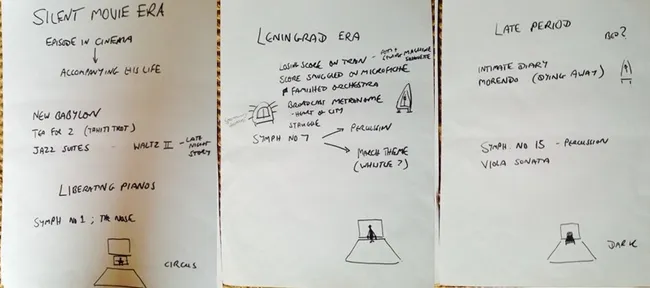 SILENT MOVIE ERA
EPISODE IN CINEMA
ACCOMPANYING HIS LIFE
NEW BABYLON
TEA FOR 2 (TAHITI TROT)
JAZZ SUITES - WALTZ II - LATE NIGHT STORY
LIBERATING PIANOS
SYMPH No 1 ; THE NOSE
CIRCUS
LENINGRAD ERA
LOSING SCORE ON TRAIN -
SCORE SMUGGLED ON MICROFICHE
FAMISHED ORCHESTRA
BROADCAST METRONOME
- HEART OF CITY
STRUGGLE
SYMPH NO 7
PERCUSSION
MARCH THEME
(WHISTLE?)
LATE PERIOD
BED?
INTIMATE DIARY
MORENDO (DYING AWAY)
SYMPH. NO 15 - PERCUSSION
VIOLA SONATA
DARK